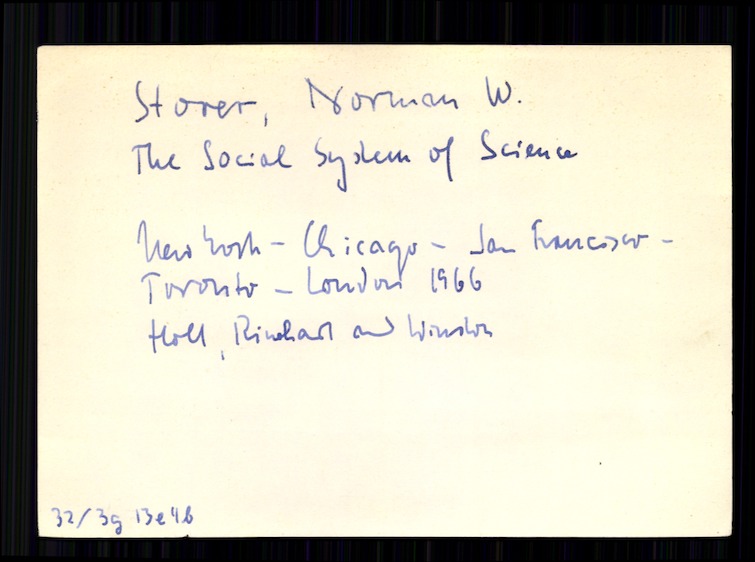 Storer, Norman W.
The Social System of Science
New York – Chicago – San Francisco –
Toronto – London 1966
Holt, Rinehart and Winston
32/3g 13e4b